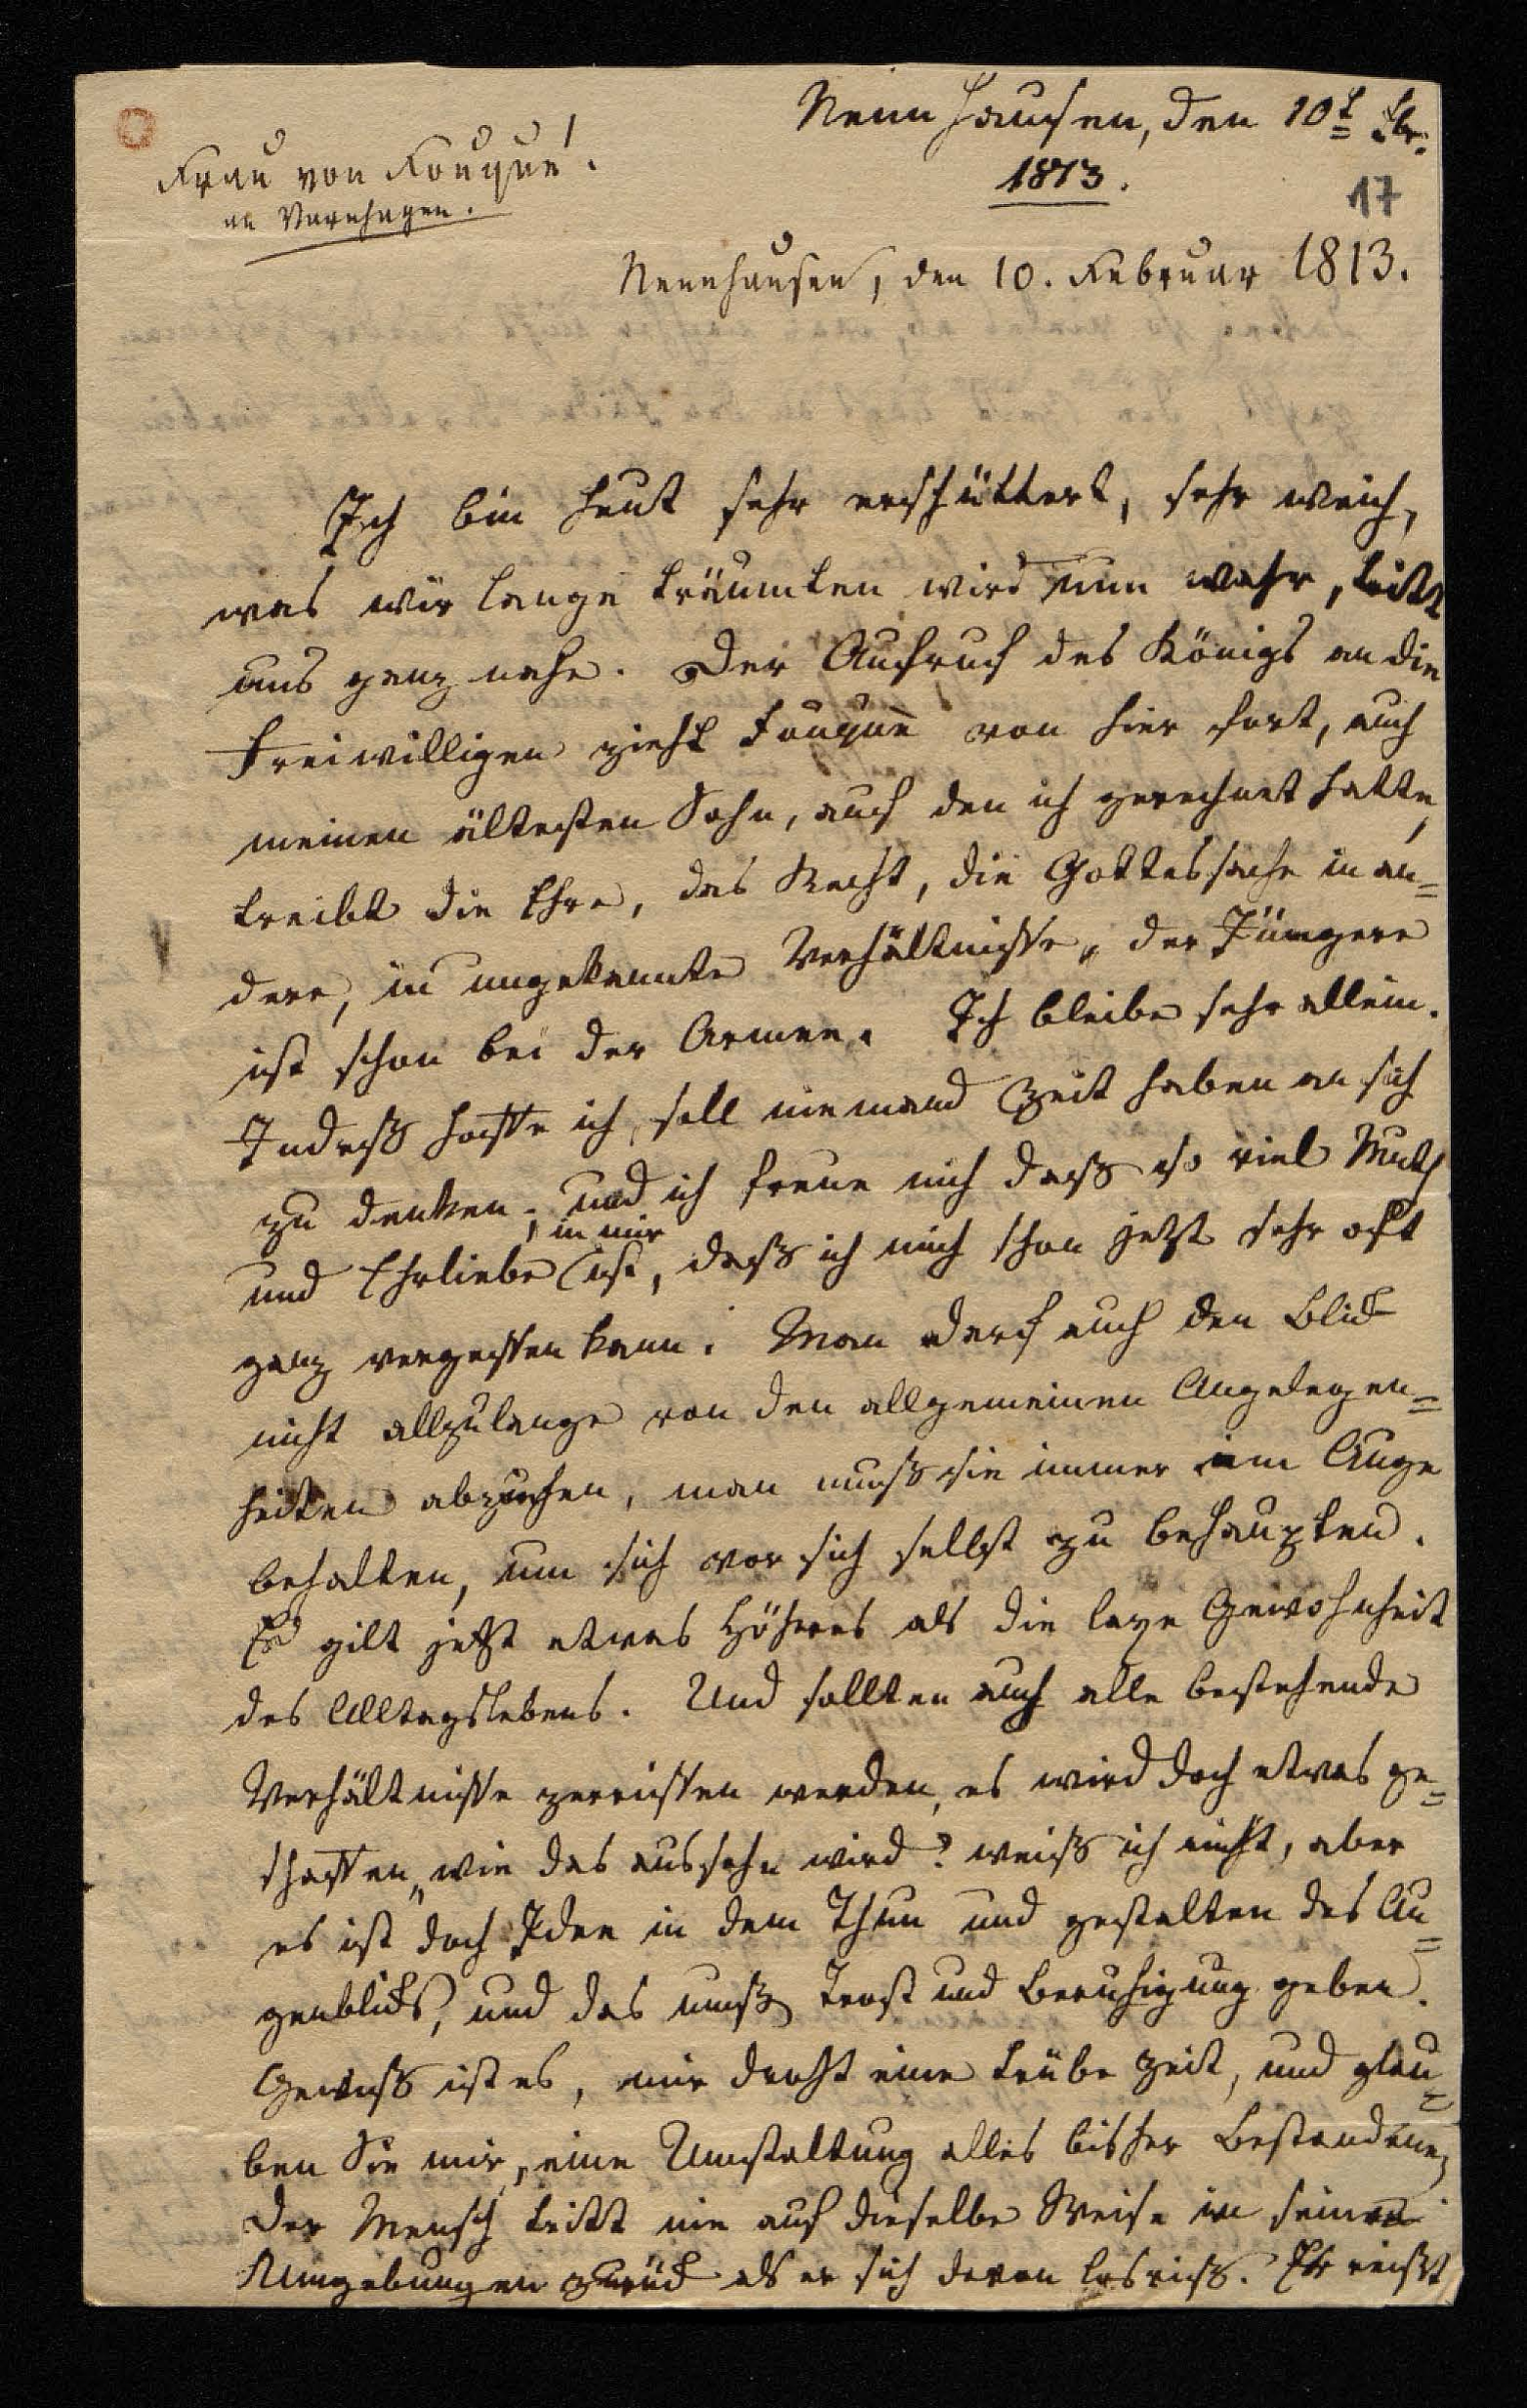 Nennhausen, den 10t Fbr.
1813.
Frau von Fouqué.
an Varnhagen.
17
Nennhausen, den 10. Februar 1813.
Ich bin heut sehr erschüttert, sehr weich,
was wir lange träumten wird nun wahr, tritt
uns ganz nahe. Der Aufruf des Königs an die
Freiwilligen zieht Fouqué von hier fort, auch
meinen ältesten Sohn, auf den ich gerechnet hatte,
treibt die Ehre, das Recht, die Gottessache in an=
dere, in ungekannte Verhältnisse, der Jüngere
ist schon bei der Armee. Ich bleibe sehr allein.
Indess hoffe ich, soll niemand Zeit haben an sich
zu denken; und ich freue mich dass so viel Muth
und Ehrliebe in mir ist, dass ich mich schon jetzt sehr oft
ganz vergessen kann. Man darf auch den Blick
nicht allzulange von den allgemeinen Angelegen=
heiten abziehen, man muss sie immer im Auge
behalten, um sich vor sich selbst zu behaupten.
Es gilt jetzt etwas Höheres als die laxe Gewohnheit
des Alltagslebens. Und sollten auch alle bestehende
Verhältnisse zerrissen werden, es wird doch etwas ge=
schaffen, wie das aussehn wird? weiss ich nicht, aber
es ist doch Idee in dem Thun und gestalten des Au=
genblicks, und das muss Trost und Beruhigung geben.
Gewiss ist es, mir droht eine trübe Zeit, und glau=
ben Sie mir, eine Umstaltung alles bisher Bestandenen,
der Mensch tritt nie auf dieselbe Weise in seine
Umgebungen zurück als er sich davon losriss. Er reisst